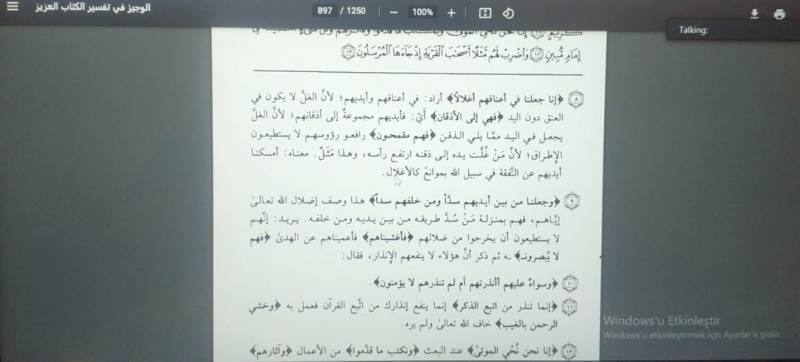 الوجيز في تفسير الكتاب العزيز
897 / 1250 − 100% +
Talking:
إِمَامٍ مُّبِينٍ ١٢ وَاضْرِبْ لَهُم مَّثَلًا أَصْحَابَ الْقَرْيَةِ إِذْ جَاءَهَا الْمُرْسَلُونَ ١٣
٨ ﴿إنا جعلنا في أعناقهم أغلالاً﴾ أراد: في أعناقهم وأيديهم؛ لأنَّ الغلَّ لا يكون في
العنق دون اليد ﴿فهي إلى الأذقان﴾ أَيْ: فأيديهم مجموعةٌ إلى أذقانهم؛ لأنَّ الغلَّ
يجعل في اليد ممَّا يلي الذقن ﴿فهم مقمحون﴾ رافعو رؤوسهم لا يستطيعون
الإطراق؛ لأنَّ مَنْ غُلَّت يده إلى ذقنه ارتفع رأسه، وهذا مَثَلٌ. معناه: أمسكنا
أيديهم عن النَّفقة في سبيل الله بموانعَ كالأغلال.
٩ ﴿وجعلنا من بين أيديهم سدّاً ومن خلفهم سداً﴾ هذا وصف إضلال الله تعالىٰ
إيَّاهم، فهم بمنزلة مَنْ سُدَّ طريقه من بين يديه ومن خلفه. يريد: إنَّهم
لا يستطيعون أن يخرجوا من ضلالهم ﴿فأغشيناهم﴾ فأعميناهم عن الهدىٰ ﴿فهم
لا يُبصرون﴾ ـه ثم ذكر أنَّ هؤلاء لا ينفعهم الإِنذار، فقال:
١٠ ﴿وسواءٌ عليهم أأنذرتهم أم لم تنذرهم لا يؤمنون﴾.
١١ ﴿إنما تنذر من اتبع الذكر﴾ إنما ينفع إنذارك من اتَّبع القرآن فعمل به ﴿وخشي
الرحمن بالغيب﴾ خاف الله تعالىٰ ولم يره.
١٢ ﴿إنا نحن نُحْيِ الموتىٰ﴾ عند البعث ﴿ونكتب ما قدَّموا﴾ من الأعمال ﴿وآثارهم﴾
Windows'u Etkinleştir
Windows'u etkinleştirmek için Ayarlar'a gidin.